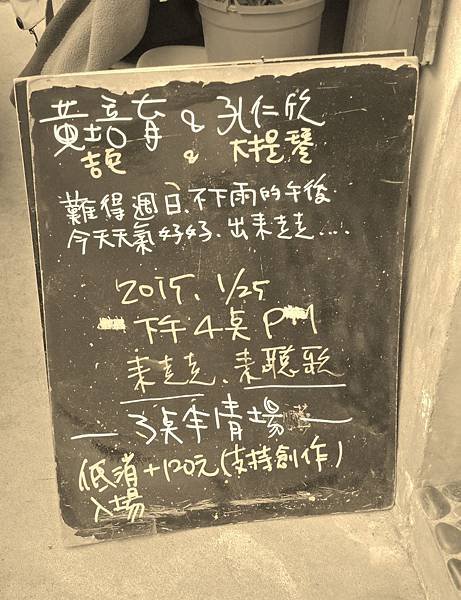 黃培育 & 孔仁欣
吉他 & 大提琴
難得週日、不下雨的午後
今天天氣好好、出來走走....
2015、1/25
下午4桌PM
來走走、來聽歌
3桌半清場
低消+120元(支持創作)
入場